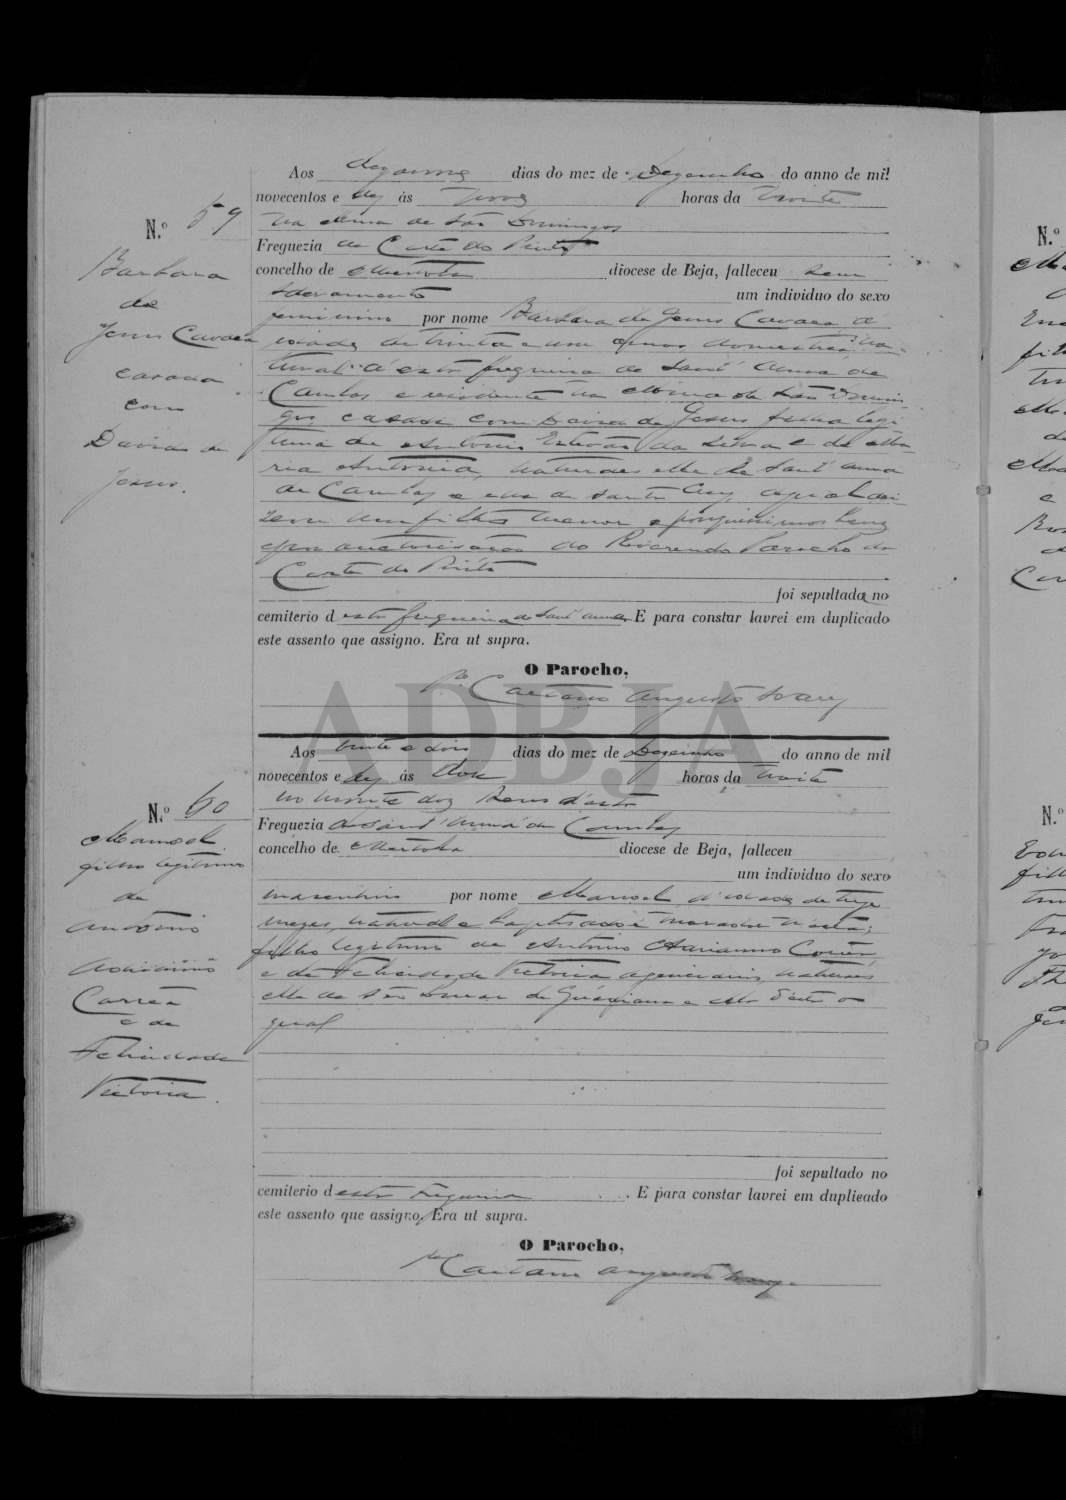 Aos dezanove dias do mez de Dezembro do anno de mil
novecentos e dez ás nove horas da noite
na Mina de São Domingos
Freguezia de Corte do Pinto
concelho de Mertola diocese de Beja, falleceu sem
sacramentos um individuo do sexo
feminino por nome Barbara de Jesus Cavaca de
idade de trinta e um annos domestica na-
tural d'esta freguezia de Sant'Anna de
Cambas e residente na Mina de São Domin-
gos casada com David de Jesus filha legi-
tima de Antonio da e de Ma-
ria Antonia, naturaes elle de Sant'Anna
de Cambas e ella de Santa Cruz, a qual dei-
xou um filho menor e
com auctorisação do Reverendo Parocho da
Corte do Pinto
foi sepultada no
cemiterio desta freguezia de Sant'Anna. E para constar lavrei em duplicado
este assento que assigno. Era ut supra.
O Parocho,
Pe. Caetano Augusto
N.º 59
Barbara
de
Jesus Cavaca
casada
com
David de
Jesus.
ADBJA
Aos vinte e dois dias do mez de Dezembro do anno de mil
novecentos e dez ás doze horas da noite
no Monte dos d'esta
Freguezia de Sant'Anna de Cambas
concelho de Mertola diocese de Beja, falleceu
um individuo do sexo
masculino por nome Manoel d'idade de treze
mezes natural e baptisado e morador n'esta;
filho legitimo de Antonio Adrianno Correa
e de Felicidade Victoria naturaes
elle de São de Guadiana e ella d'esta o
qual
foi sepultado no
cemiterio desta freguezia. E para constar lavrei em duplicado
este assento que assigno. Era ut supra.
O Parocho,
Pe. Caetano Augusto
N.º 60
Manoel
filho legitimo
de
Antonio
Adrianno
Correa
e de
Felicidade
Victoria.
N.º
N.º